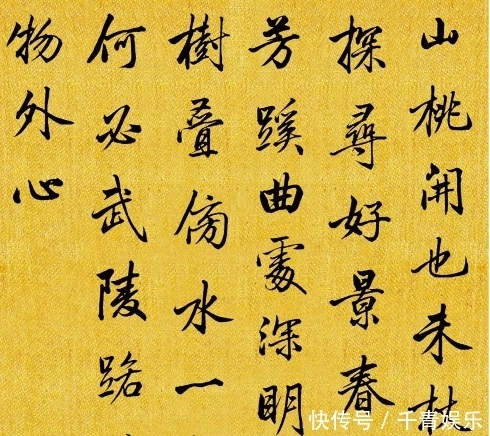 山桃開也未杖
探尋好景春
芳蹊曲處深明
樹疊傍水一
何必武陵路
物外心
快传号 / 千青娱乐